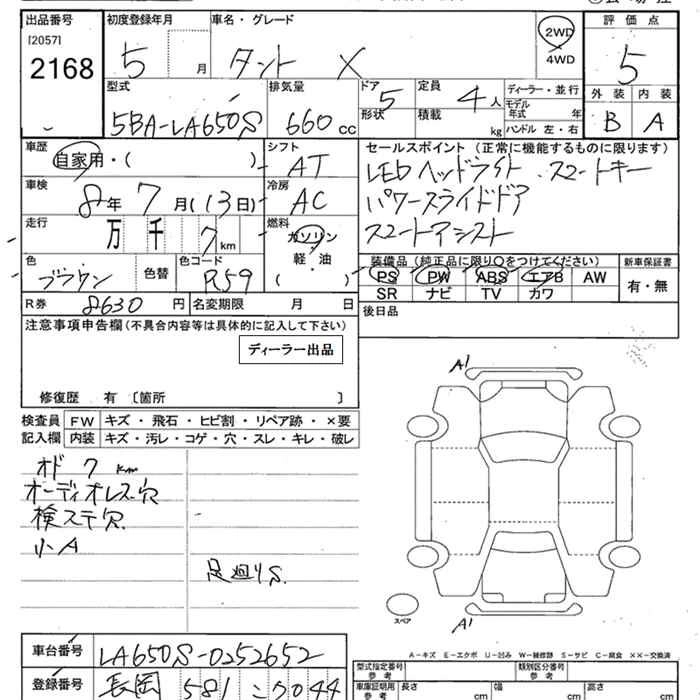 出品番号 初度登録年月 車名・グレード 2WD 評価点
[2057]
2168 5 月 タント X 4WD 5
型式 排気量 ドア 5 定員 4人 ディーラー・並行 外装 内装
5BA-LA650S 660 cc 形状 積載 kg モデル年式 年 B A
ハンドル 左・右
車歴 自家用・( ) シフト AT セールスポイント (正常に機能するものに限ります)
車検 8年 7月(13日) 冷房 AC LEDヘッドライト.スマートキー
パワースライドドア
走行 万 千 7 km 燃料 ガソリン スマートアシスト
軽・油
( )
色 ブラウン 色替 色コード R59 装備品(純正品に限り○をつけてください) 新車保証書
PS PW ABS エアB AW 有・無
R券 8630 円 名変期限 月 日 SR ナビ TV カワ
注意事項申告欄(不具合内容等は具体的に記入して下さい) 後日品
ディーラー出品
修復歴 有 〔箇所 〕
A1
検査員 FW キズ・飛石・ヒビ割・リペア跡・×要
記入欄 内装 キズ・汚レ・コゲ・穴・スレ・キレ・破レ
オド 7 km
オーディオレス穴
検ステ穴
小A
足廻りS.
スペア
A1
A-キズ E-エクボ U-凹み W-補修跡 S-サビ C-腐食 XX-交換済
車台番号 LA650S-0252652
型式指定番号 参考 類別区分番号 参考
登録番号 長岡 581 こ 7044
車庫証明用 参考 長さ cm 幅 cm 高さ cm